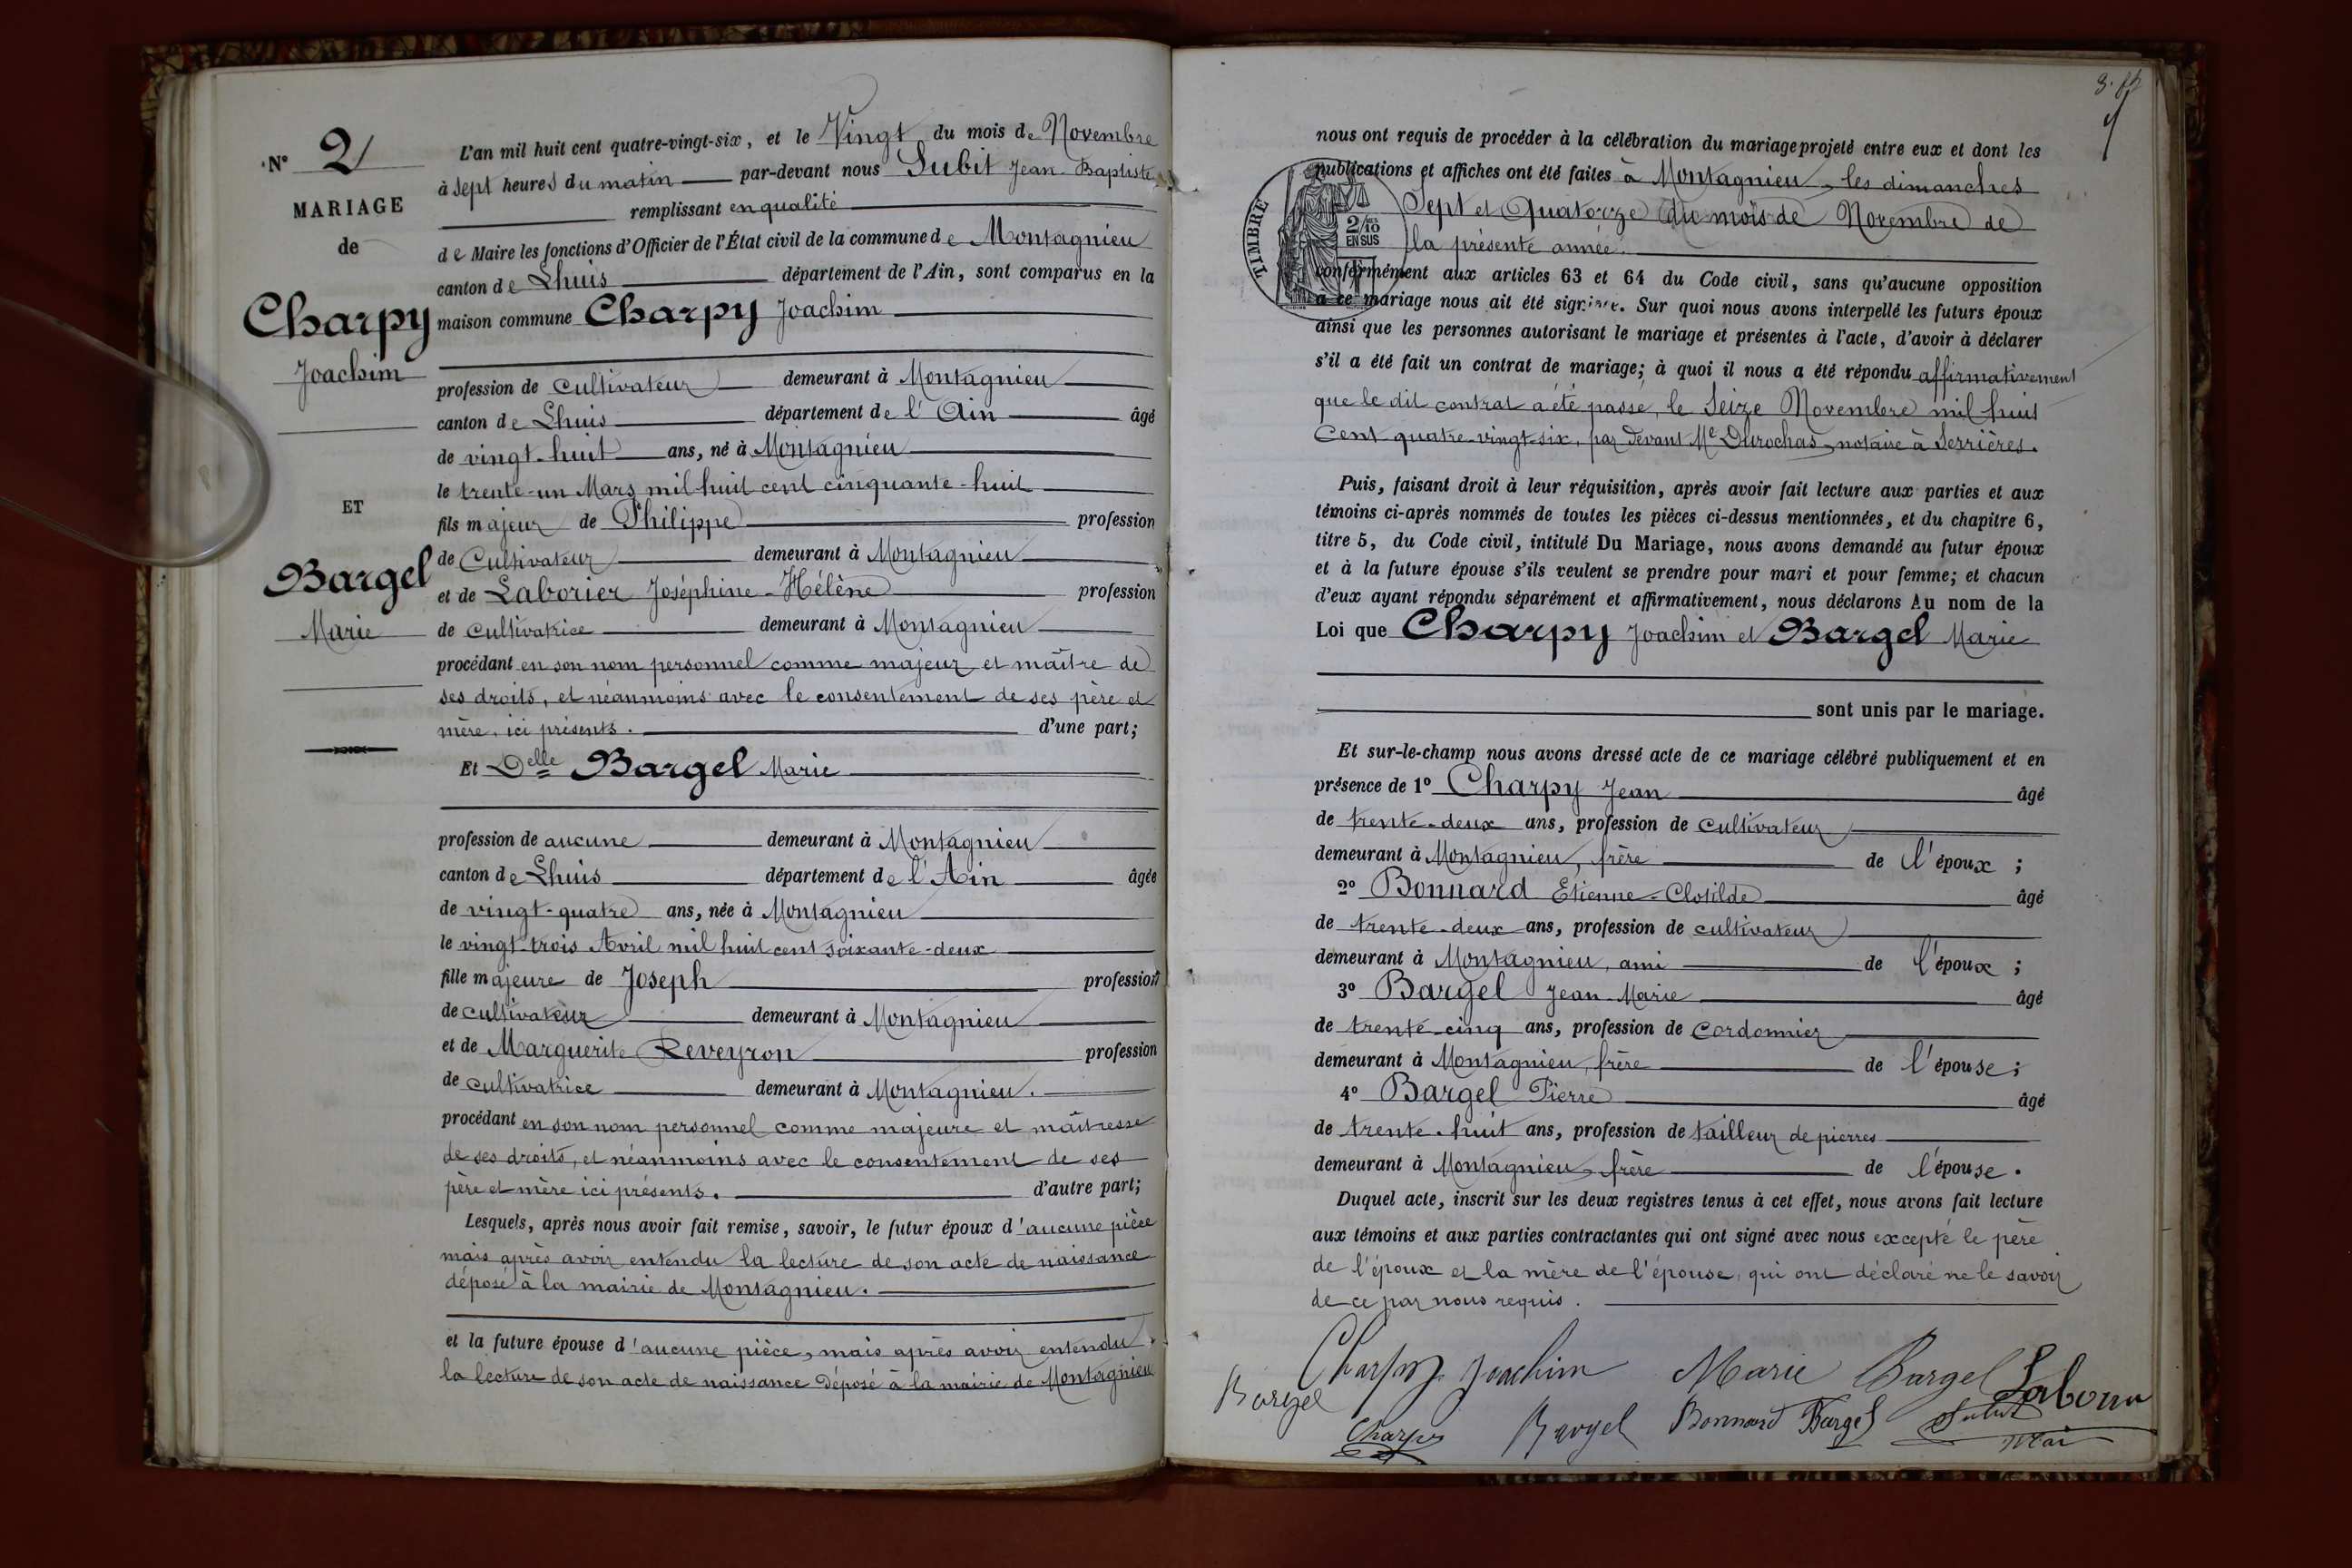 N° 2
MARIAGE
de
Charpy
Joachim
ET
Bargel
Marie
L'an mil huit cent quatre-vingt-six, et le Vingt du mois de Novembre
à Sept heures du matin par-devant nous Subit Jean-Baptiste
remplissant en qualité
de Maire les fonctions d'Officier de l'État civil de la commune de Montagnieu
canton de Lhuis département de l'Ain, sont comparus en la
maison commune Charpy Joachim
profession de cultivateur demeurant à Montagnieu
canton de Lhuis département de l'Ain âgé
de vingt-huit ans, né à Montagnieu
le trente-un Mars mil huit cent cinquante-huit
fils majeur de Philippe profession
de Cultivateur demeurant à Montagnieu
et de Laborier Joséphine-Hélène profession
de cultivatrice demeurant à Montagnieu
procédant en son nom personnel comme majeur et maître de
ses droits, et néanmoins avec le consentement de ses père et
mère, ici présents. d'une part;
Et Delle Bargel Marie
profession de aucune demeurant à Montagnieu
canton de Lhuis département de l'Ain âgée
de vingt-quatre ans, née à Montagnieu
le vingt-trois Avril mil huit cent soixante-deux
fille majeure de Joseph profession
de cultivateur demeurant à Montagnieu
et de Marguerite Reveyron profession
de cultivatrice demeurant à Montagnieu.
procédant en son nom personnel comme majeure et maîtresse
de ses droits, et néanmoins avec le consentement de ses
père et mère ici présents. d'autre part;
Lesquels, après nous avoir fait remise, savoir, le futur époux d'aucune pièce
mais après avoir entendu la lecture de son acte de naissance
déposé à la mairie de Montagnieu.
et la future épouse d'aucune pièce, mais après avoir entendu
la lecture de son acte de naissance déposé à la mairie de Montagnieu
nous ont requis de procéder à la célébration du mariage projeté entre eux et dont les
publications et affiches ont été faites à Montagnieu, les dimanches
Sept et Quatorze du mois de Novembre de
la présente année.
TIMBRE
2/10
EN SUS
conformément aux articles 63 et 64 du Code civil, sans qu'aucune opposition
à ce mariage nous ait été signifiée. Sur quoi nous avons interpellé les futurs époux
ainsi que les personnes autorisant le mariage et présentes à l'acte, d'avoir à déclarer
s'il a été fait un contrat de mariage; à quoi il nous a été répondu affirmativement
que le dit contrat a été passé, le Seize Novembre mil huit
Cent quatre-vingt-six, par devant Me Durochas, notaire à Serrières.
Puis, faisant droit à leur réquisition, après avoir fait lecture aux parties et aux
témoins ci-après nommés de toutes les pièces ci-dessus mentionnées, et du chapitre 6,
titre 5, du Code civil, intitulé Du Mariage, nous avons demandé au futur époux
et à la future épouse s'ils veulent se prendre pour mari et pour femme; et chacun
d'eux ayant répondu séparément et affirmativement, nous déclarons Au nom de la
Loi que Charpy Joachim et Bargel Marie
sont unis par le mariage.
Et sur-le-champ nous avons dressé acte de ce mariage célébré publiquement et en
présence de 1° Charpy Jean âgé
de trente-deux ans, profession de cultivateur
demeurant à Montagnieu, frère de l'époux ;
2° Bonnard Etienne-Clotilde âgé
de trente-deux ans, profession de cultivateur
demeurant à Montagnieu, ami de l'époux ;
3° Bargel Jean-Marie âgé
de trente-cinq ans, profession de cordonnier
demeurant à Montagnieu, frère de l'épouse ;
4° Bargel Pierre âgé
de trente-huit ans, profession de tailleur de pierres
demeurant à Montagnieu, frère de l'épouse.
Duquel acte, inscrit sur les deux registres tenus à cet effet, nous avons fait lecture
aux témoins et aux parties contractantes qui ont signé avec nous excepté le père
de l'époux et la mère de l'épouse, qui ont déclaré ne le savoir
de ce par nous requis.
Charpy Joachim Marie Bargel
Bargel
Charpy Bargel Bonnard Bargel Subit